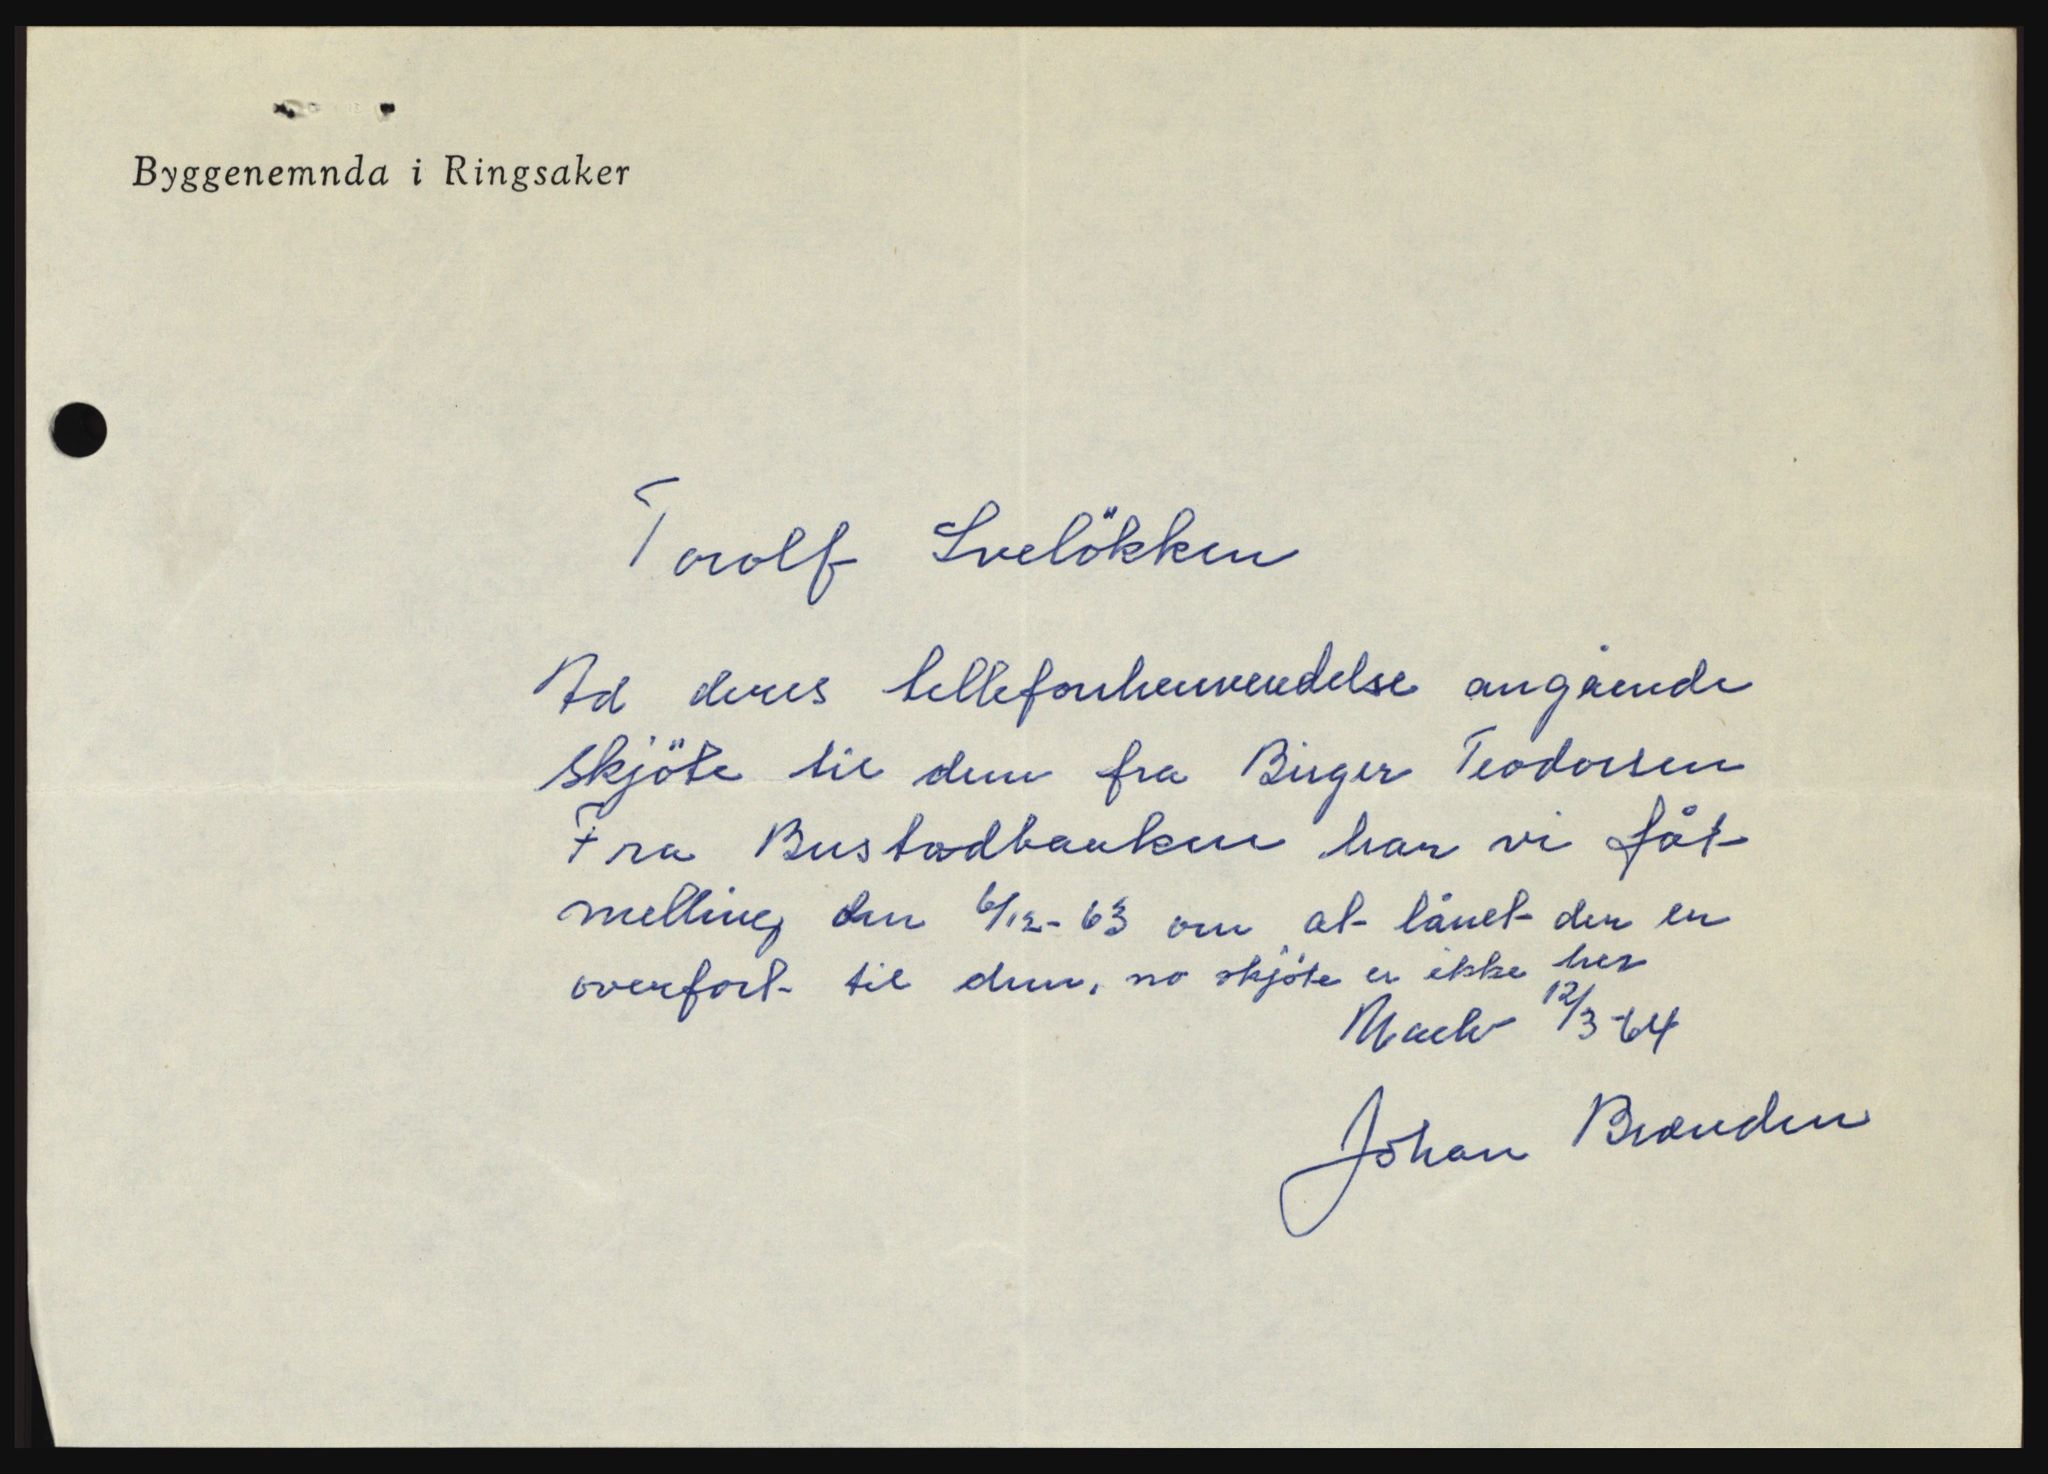 Byggenemnda i Ringsaker
Torolf Sveløkken
Ad deres tellefonhenvendelse angående
skjöte til dem fra Birger Teodorsen
Fra Bustadbanken har vi fåt
melling den 6/12-63 om at lånet der er
overfort til dem, no skjöte er ikke her
12/3-64
Johan Brænden